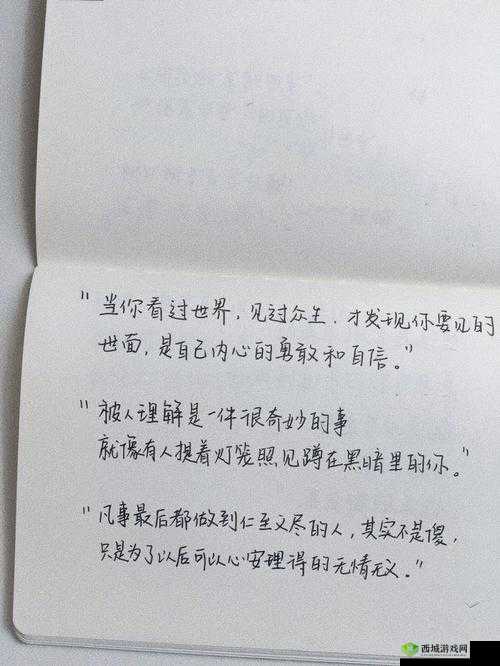 "当你看过世界，见过众生，才发现你要见的
世面，是自己内心的勇敢和自信。"
"被人理解是一件很奇妙的事
就像有人提着灯笼照见蹲在黑暗里的你。"
"凡事最后都做到仁至义尽的人，其实不是傻，
只是为了以后可以心安理得的无情无义。"
西城游戏网